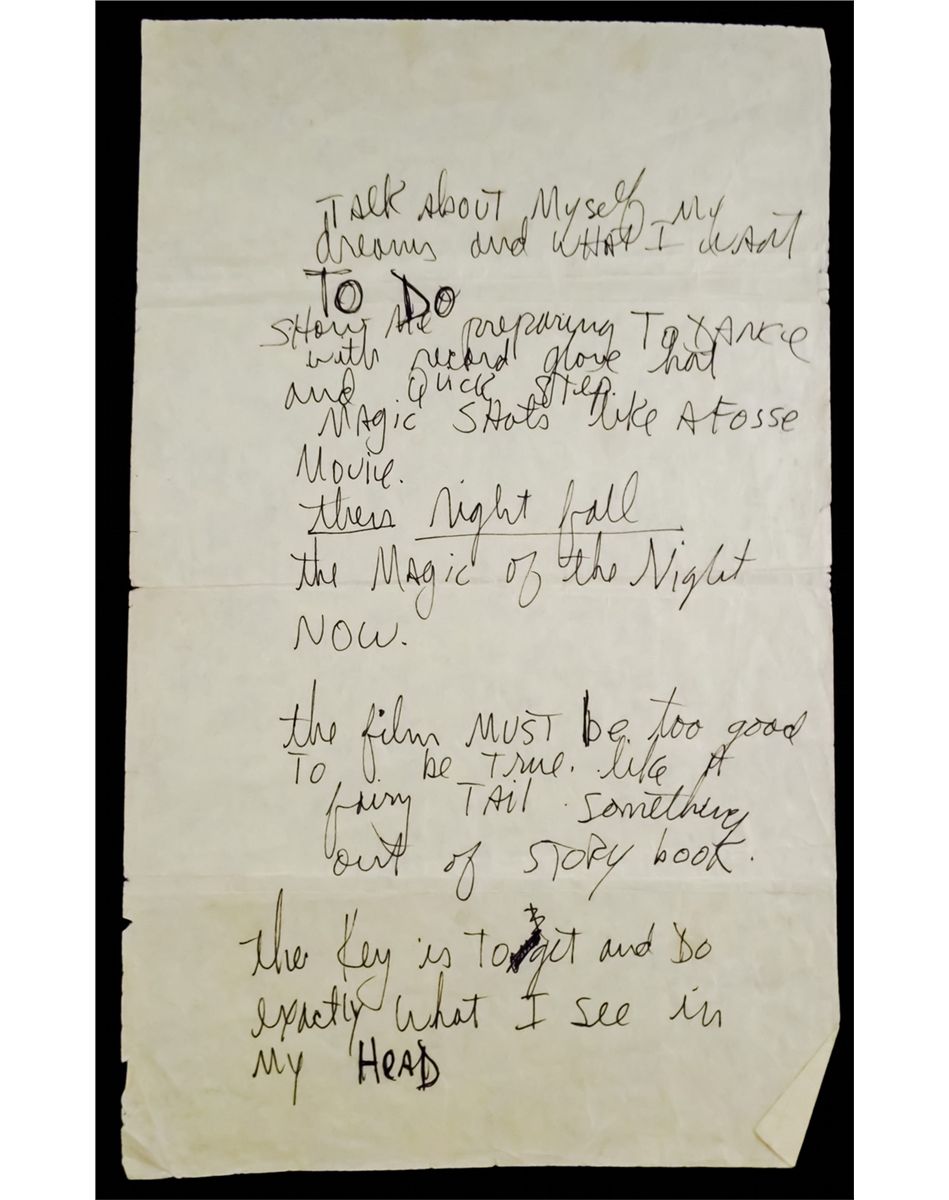 TAlk About Myself, My
dreams and WHAT I wANT
TO DO
SHow Me preparing To DANce
with record glove hat
and Quick step.
MAgic SHots like A Fosse
Movie.
then Night fall
the MAgic of the Night
NOW.
the film MUST be too good
To be True. like A
fairy TAil . something
out of STORY book.
the Key is To get and Do
exactly what I see in
My HeAD